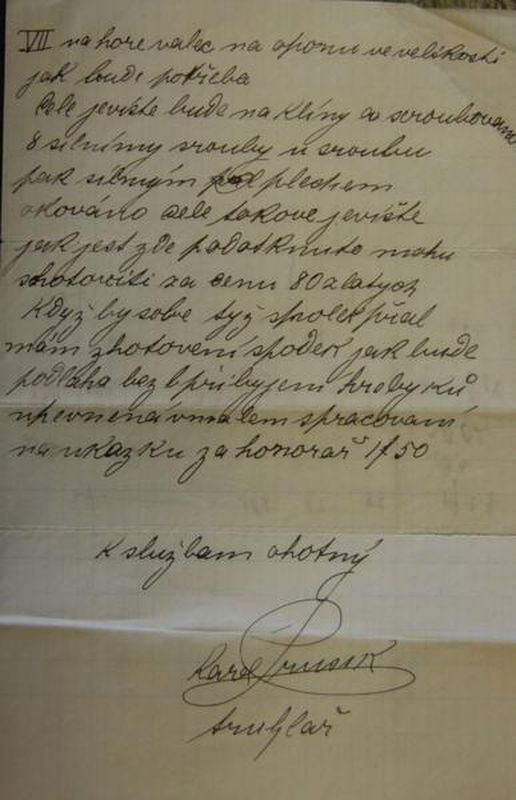 VII na hore valec na oponu ve velikosti
jak bude potřeba
Cele jevište bude na klíny a sroubovane
8 silnímy srouby u sroubu
jak silným plechem
okováno cele takove jevište
jak jest zde podotknuto mohu
zhotoviti za cenu 80 zlatych
Když by sobe tyž spolek přal
mám zhotovení spodek jak bude
podlaha bez přibyjení hrebyků
upevnená v malem spracovaní
na ukazku za honorař 1f 50
K službam ohotný
Karel
truhlař